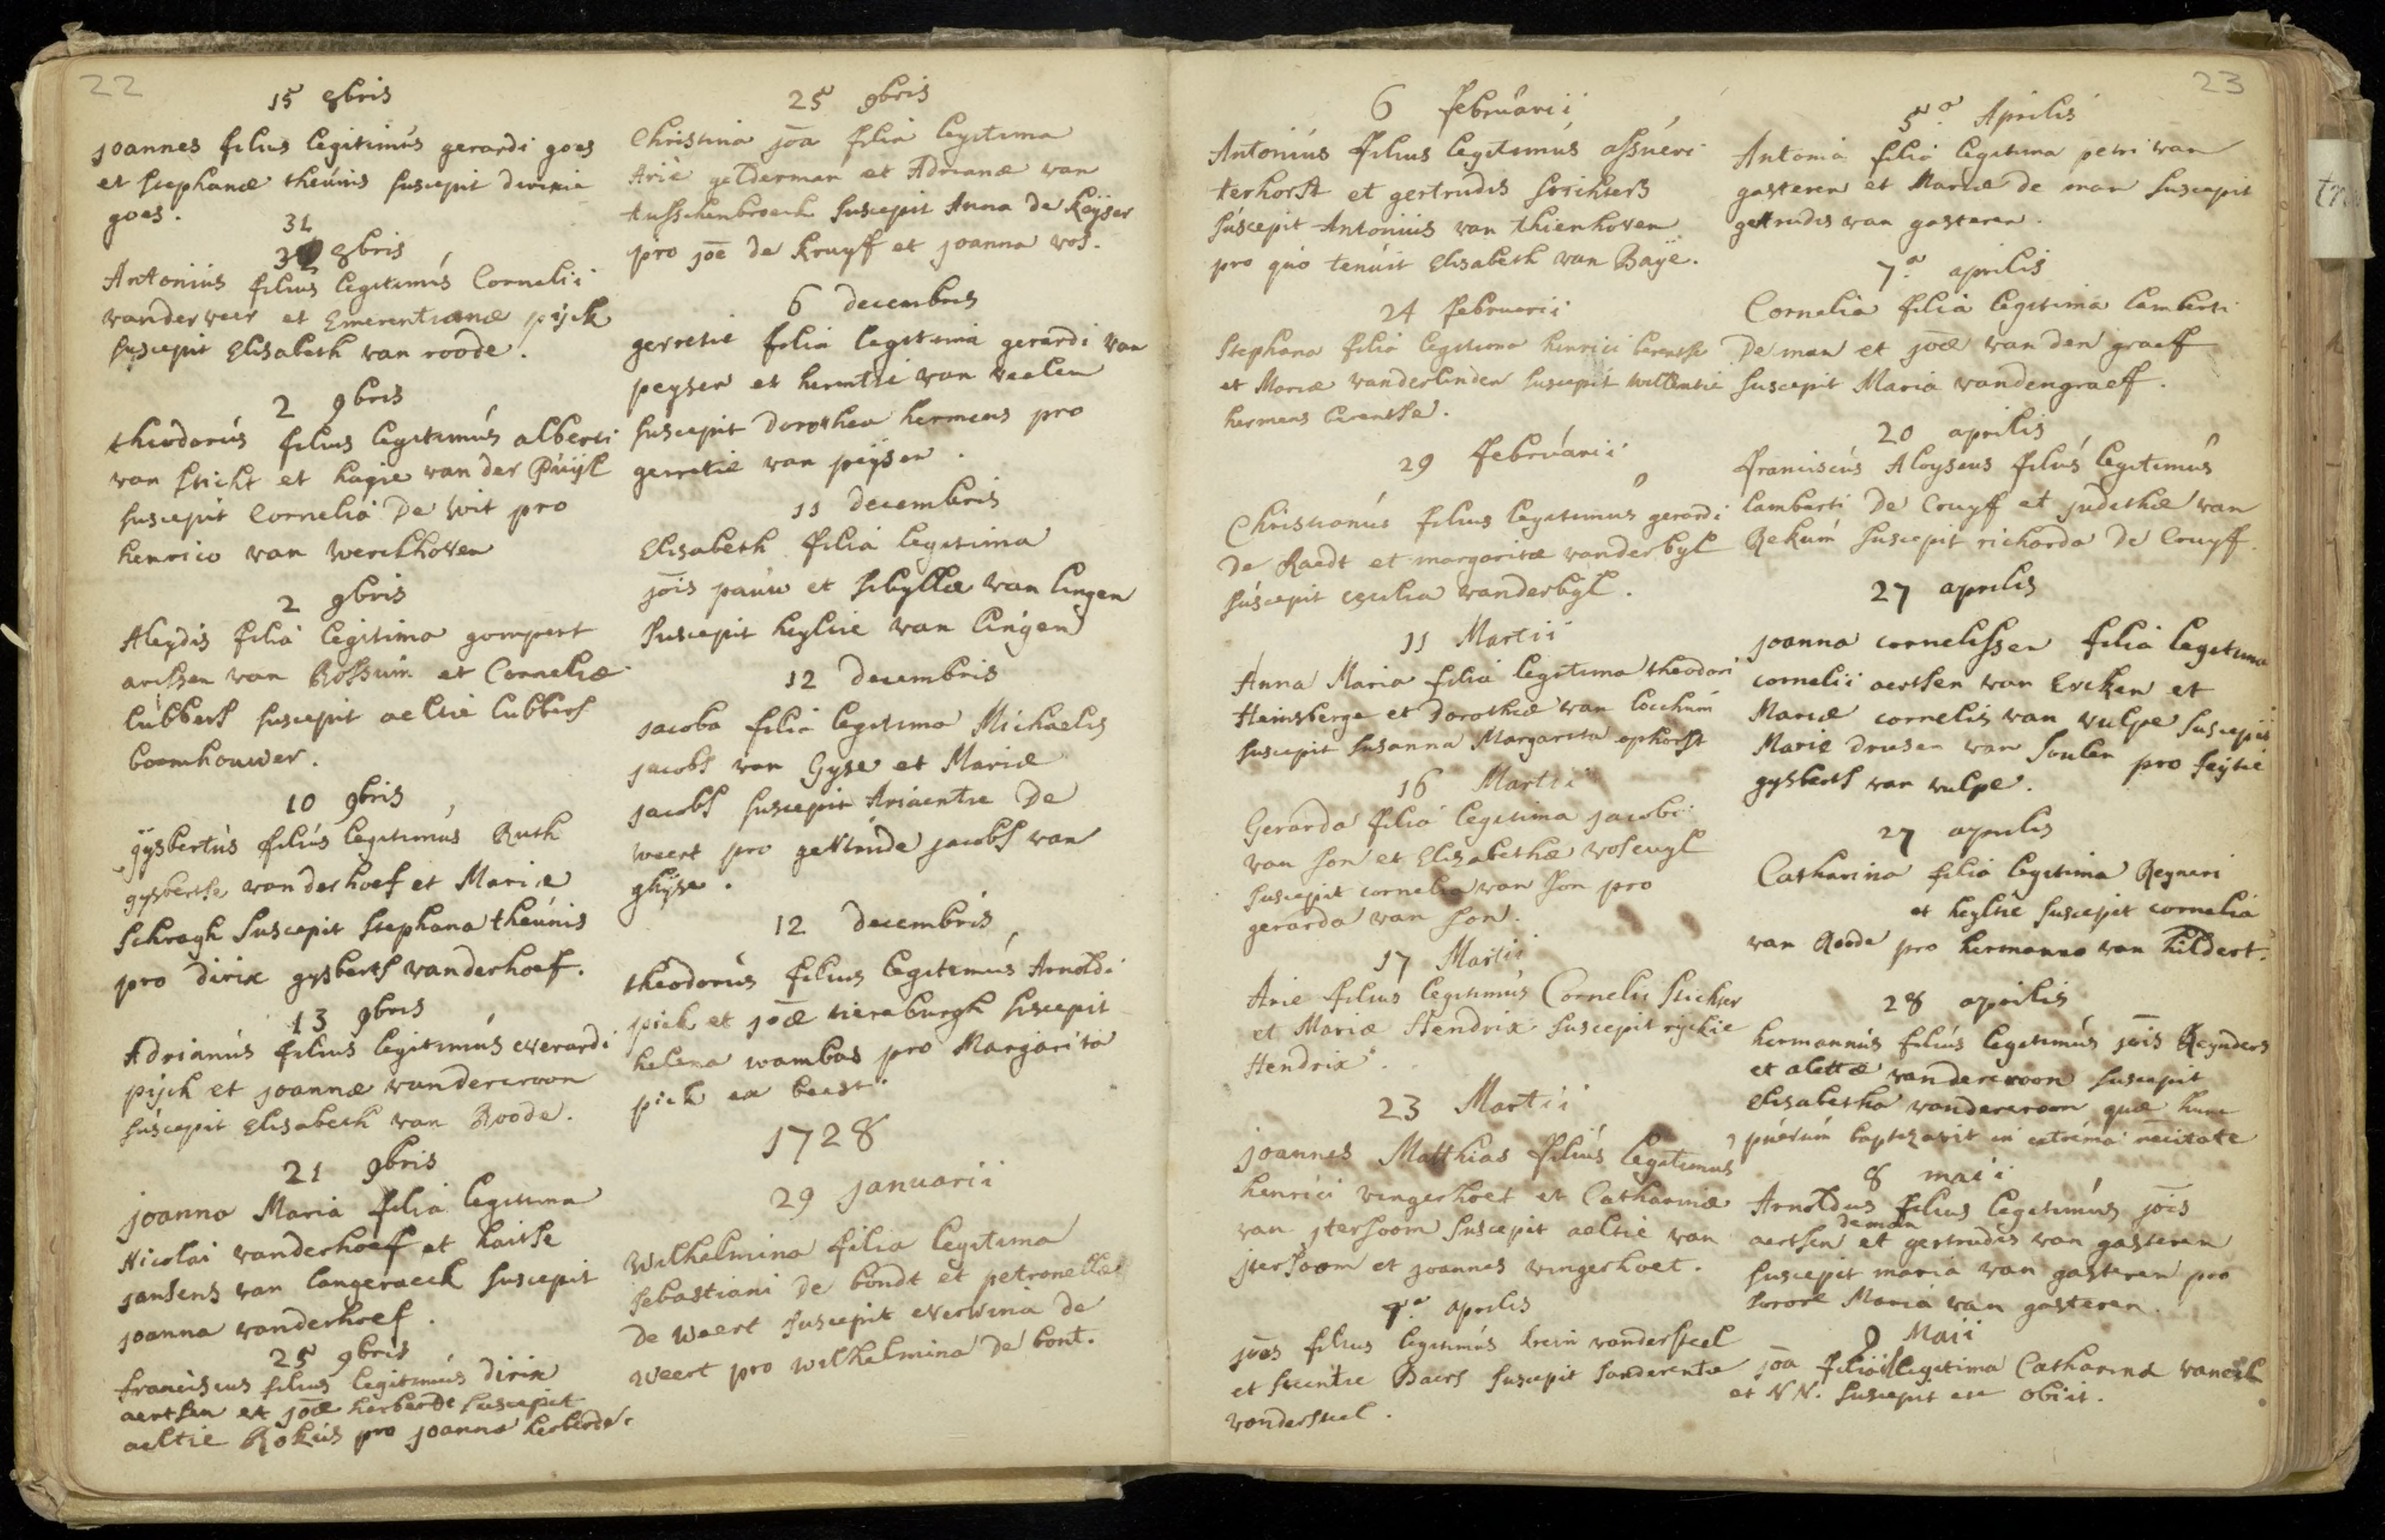 22
15 8bris
joannes filius legitimús gerardi goes
et stephanæ theúnis suscepit dirixie
goes.
31
8bris
Antonius filius legitimús Cornelii
vander veer et Emerentianæ pijck
suscepit Elisabeth van roode.
2 9bris
theodorús filius legitimús alberti
van sticht et hagie van der Púijl
suscepit Cornelia De Wit pro
henrico van Werckhoven
2 9bris
Aleydis filia legitima gompert
arissen van Rossum et Corneliæ
lúbbers suscepit aeltie lubbers
boomhouwer.
10 9bris
gysbertús filiús legitimús Ruth
gysbertse van der hoef et Mariæ
Schragh suscepit stephana theúnis
pro dirix gysberts vanderhoef.
13 9bris
Adrianús filius legitimús everardi
pijck et joannæ vandercroon
súscepit Elisabeth van Roode.
21 9bris
joanna Maria filia legitima
Nicolai vanderhoef et haitse
jansens van langeraeck suscepit
joanna vanderhoef.
25 9bris
franciscus filius legitimús dirix
aertsen et joæ herberde suscepit
aeltie Rokús pro joanna herberde.
25 9bris
Christina joa filia legitima
Arie gelderman et Adrianæ van
tusschenbroeck suscepit Anna de Keijser
pro joe de Kruyff et joanna vos.
6 decembris
gerretie filia legitima gerardi van
peysen et hermtie van veelen
suscepit Dorothea hermens pro
gerretie van peijsen.
11 decembris
Elisabeth filia legitima
jois paúw et sibyllæ van lingen
suscepit heyltie van lingen
12 decembris
jacoba filia legitima Michaelis
jacobs van Gyse et Mariæ
jacobs suscepit Ariaentie De
weert pro gertrude jacobs van
ghijse.
12 decembris
theodorus filius legitimús Arnoldi
pick et joæ vieraburgh suscepit
helena wambas pro Margarita
pick ex beest.
1728
29 januarii
Wilhelmina filia legitima
sebastiani de bondt et petronellæ
de Weert suscepit everwina de
weert pro wilhelmina de bont.
23
6 febrúarii
Antoniús filius legitimús assúeri
terhorst et gertrudis stichters
súscepit Antonius van thienhoven
pro qúo tenúit Elisabeth van Baije.
24 februarii
Stephana filia legitima henrici berentse
et Mariæ vanderlinden suscepit willemtie
hermens berentse.
29 febrúarii
Christianús filius legitimús gerardi
De Raedt et margaritæ vanderbyl
súscepit cecilia vanderbyl.
11 Martii
Anna Maria filia legitima theodori
Heinsberge et Dorotheæ van locchúm
suscepit susanna Margareta ophorst
16 Martii
Gerarda filia legitima jacobi
van son et Elisabethæ voseuyl
suscepit cornelia van son pro
gerarda van son.
17 Martii
Arie filius legitimús Cornelii stichter
et Mariæ Hendrix suscepit rijckie
Hendrix.
23 Martii
joannes Matthias filiús legitimus
henrici vingerhoet et Catharinæ
van jtersoom suscepit aeltie van
jtersoom et joannes vingerhoet.
1a. aprilis
joes filius legitimús krein vandersteel
et steintie Baers suscepit sanderentie
vandersteel.
5a. Aprilis
Antonia filia legitima petri van
gasteren et Mariæ de man suscepit
gertrudis van gasteren.
7a. aprilis
Cornelia filia legitima lamberti
De man et joæ van den graeff
suscepit Maria vandengraeff.
20 aprilis
franciscús Aloysius filiús legitimús
lamberti De Cruyff et judithæ van
Rekúm suscepit richarda De Cruyff.
27 aprilis
joanna cornelissen filia legitima
cornelii aertsen van Ercken et
Mariæ cornelis van vulpe suscepit
Marie drusen van soulen pro feijtie
gysberts van vulpe.
27 aprilis
Catharina filia legitima Reyneri
et heyltie suscepit cornelia
van Roode pro hermanno van hildert.
28 aprilis
hermannús filiús legitimús jois Reynders
et alettæ vandercroon suscepit
Elisabetha vandercroon quæ hunc
púerúm baptizavit in extrema necitate
8 maii
Arnoldus filius legitimús jois
deman
aertsen et gertrudis van gasteren
suscepit maria van gasteren pro
sorore Maria van gasteren.
9 Maii
joa filia illegitima Catharina van
et NN. suscepit obiit.